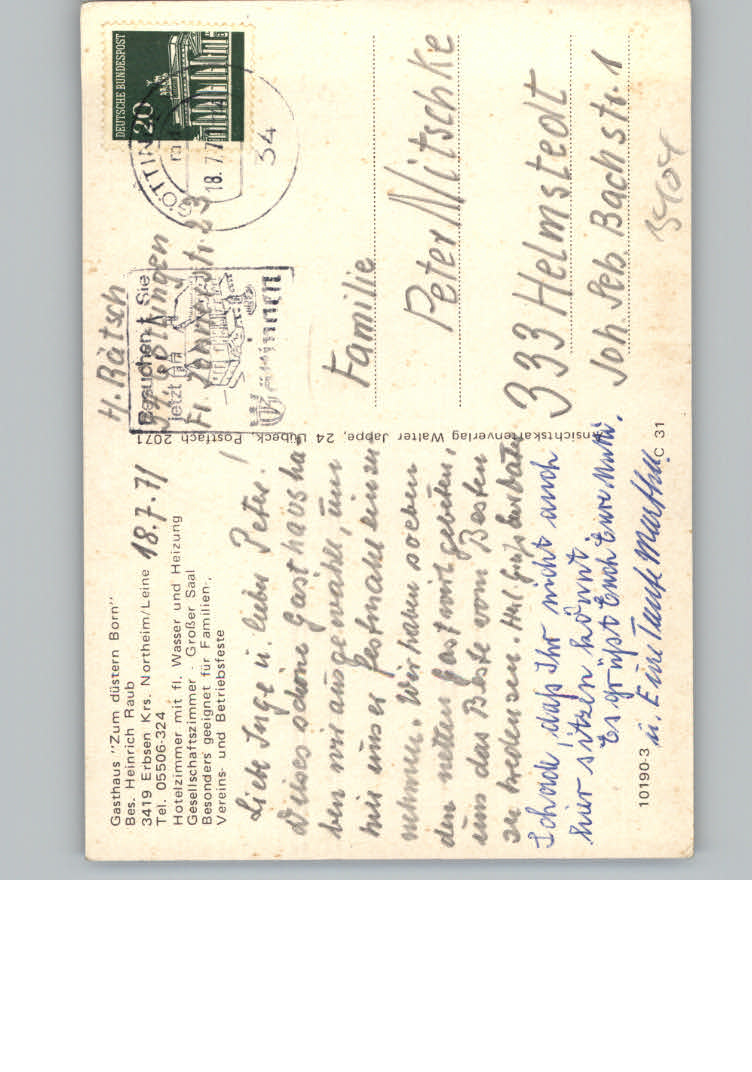 Gasthaus "Zum düstern Born"
Bes. Heinrich Raub
3419 Erbsen Krs. Northeim/Leine
Tel. 05506-324
Hotelzimmer mit fl. Wasser und Heizung
Gesellschaftszimmer - Großer Saal
Besonders geeignet für Familien-,
Vereins- und Betriebsfeste
18.7.71
Liebe Inge u. lieber Peter!
Dieses schöne Gasthaus ha
ben wir ausgewählt, um
hier unser Festmahl einzu
nehmen. Wir haben soeben
den netten Gastwirt gebeten,
uns das Beste vom Besten
zu
Schade, daß Ihr nicht auch
hier sitzen könnt.
Es grüßt Euch Eure Mutti.
u. Eure Tante Martha.
10190-3
C 31
Ansichtskartenverlag Walter Jappe, 24 Lübeck, Postfach 2071
H. Rätsch
34 Göttingen
23
Besuchen Sie
jetzt
DEUTSCHE BUNDESPOST
20
34
18.7.7
Familie
Peter Nitschke
333 Helmstedt
Joh. Seb. Bachstr. 1